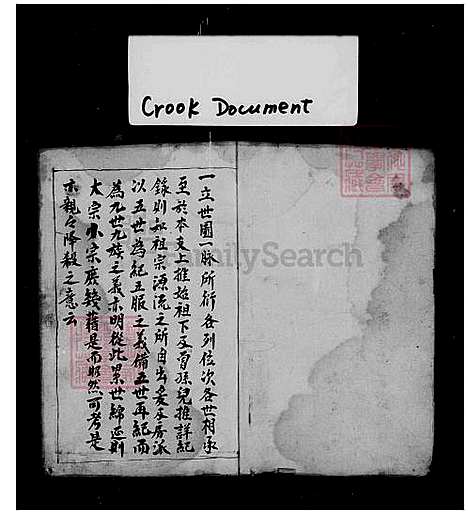 Crook Document
一立世圖一脉所衍各列位次各世相承
至於本支上推始祖下及曾孫兒推詳紀
錄則知祖宗源流之所自出爰及房派
以五世為紀五服之義備五世再紀而
為九世九族之義亦明從此累世綿延則
大宗小宗庶幾藉是而昭然可考是
亦親親降殺之意云
FamilySearch